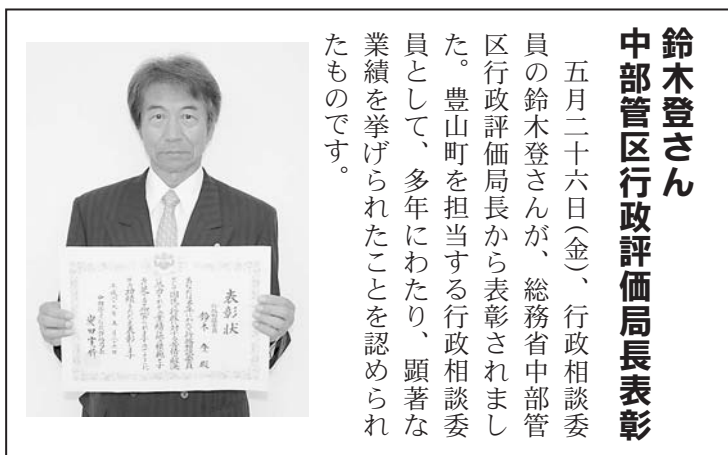 鈴木登さん
中部管区行政評価局長表彰
五月二十六日(金)、行政相談委
員の鈴木登さんが、総務省中部管
区行政評価局長から表彰されまし
た。豊山町を担当する行政相談委
員として、多年にわたり、顕著な
業績を挙げられたことを認められ
たものです。
表彰状
鈴木 登 殿